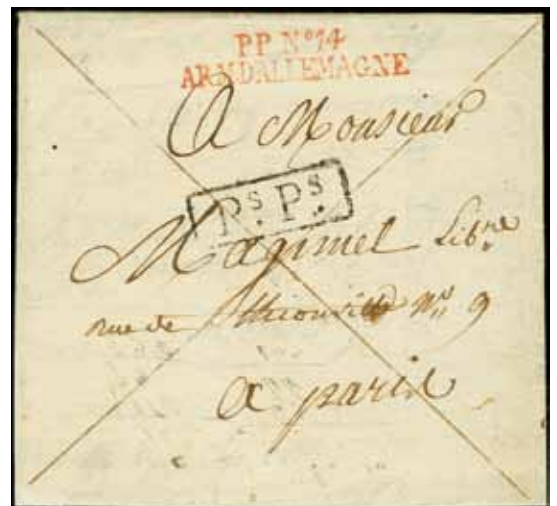 PP Nº 14
ARM.DALLEMAGNE
A Monsieur
Ps. Ps.
Magimel Libre
rue de Thionville Nº 9
a paris